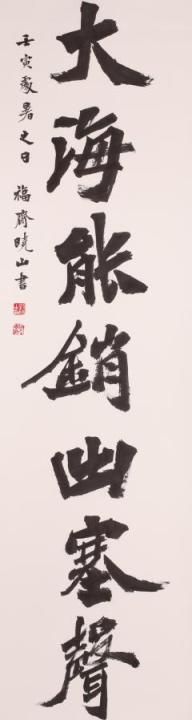 大海能銷幽塞聲
壬寅處暑之日 福齋曉山書